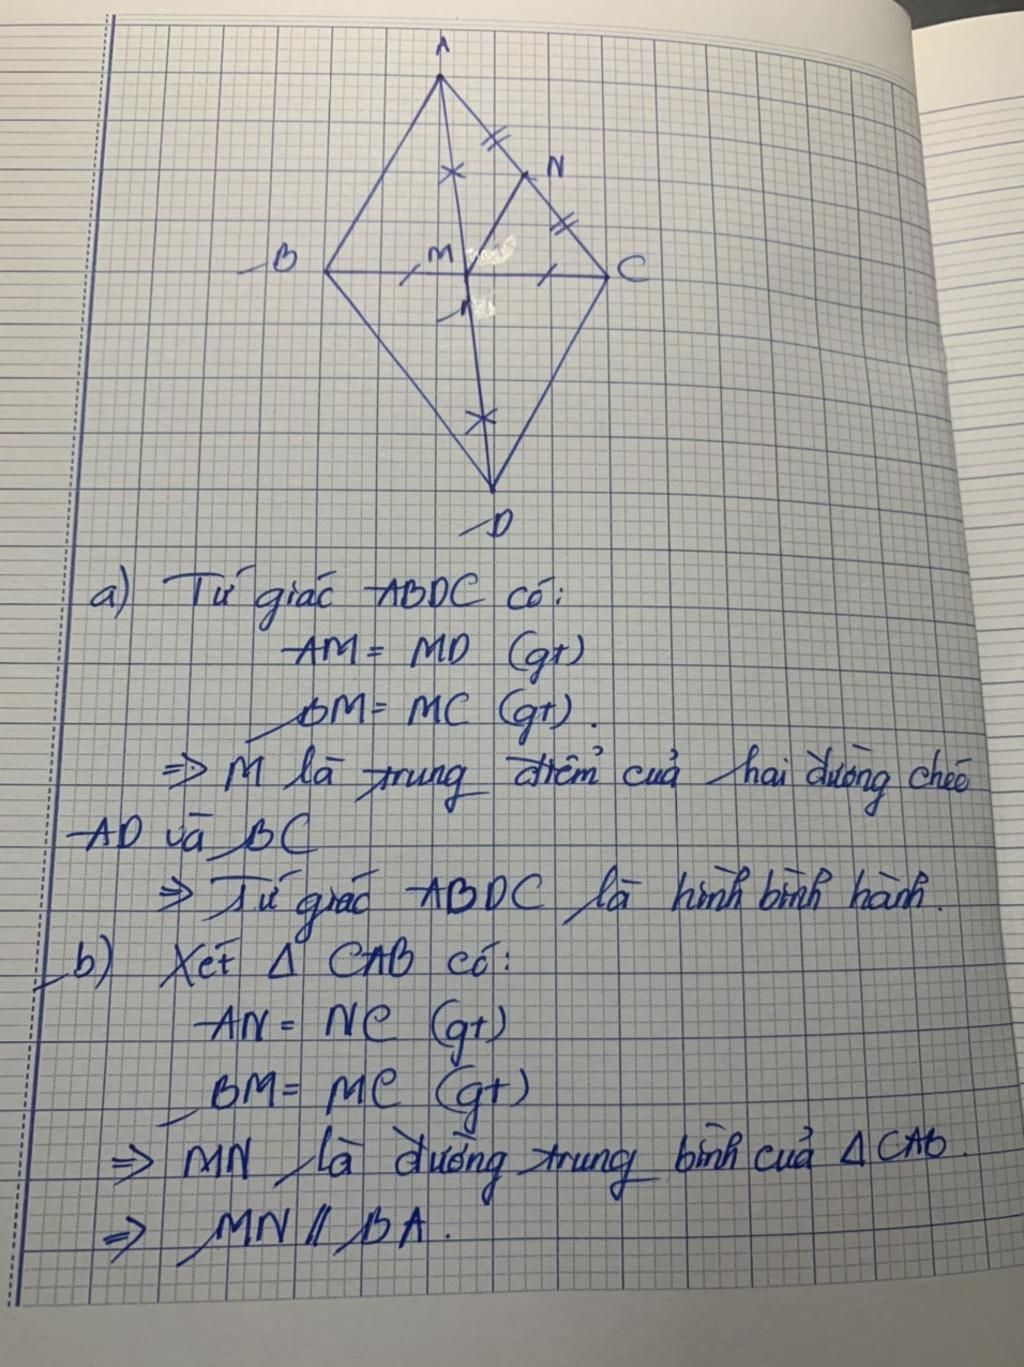 A
N
B
M
C
D
a) Tứ giác ABDC có:
AM = MD (gt)
BM = MC (gt).
=> M là trung điểm của hai đường chéo
AD và BC
=> Tứ giác ABDC là hình bình hành.
b) Xét Δ CAB có:
AN = NC (gt)
BM = MC (gt)
=> MN là đường trung bình của Δ CAB.
=> MN // BA.